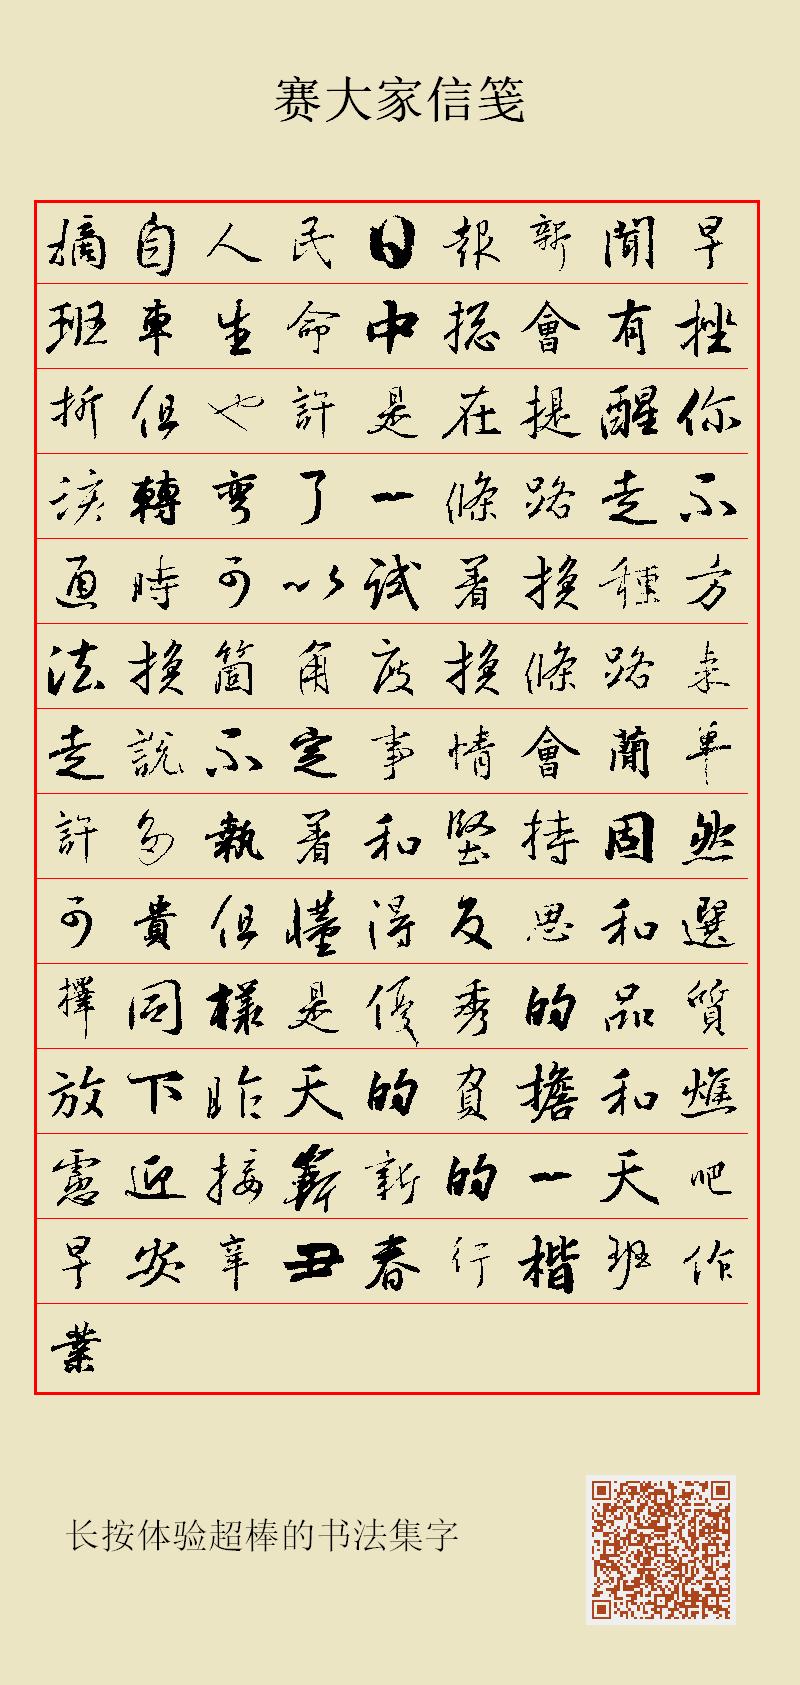 赛大家信笺
摘自人民日報新聞早
班車生命中總會有挫
折但也許是在提醒你
該轉彎了一條路走不
通時可以試着換種方
法換箇角度換條路來
走說不定事情會蕳單
許多執着和堅持固然
可貴但懂得反思和選
擇同樣是優秀的品質
放下昨天的負擔和憔
慮迎接嶄新的一天吧
早安辛丑春行楷班作
業
长按体验超棒的书法集字